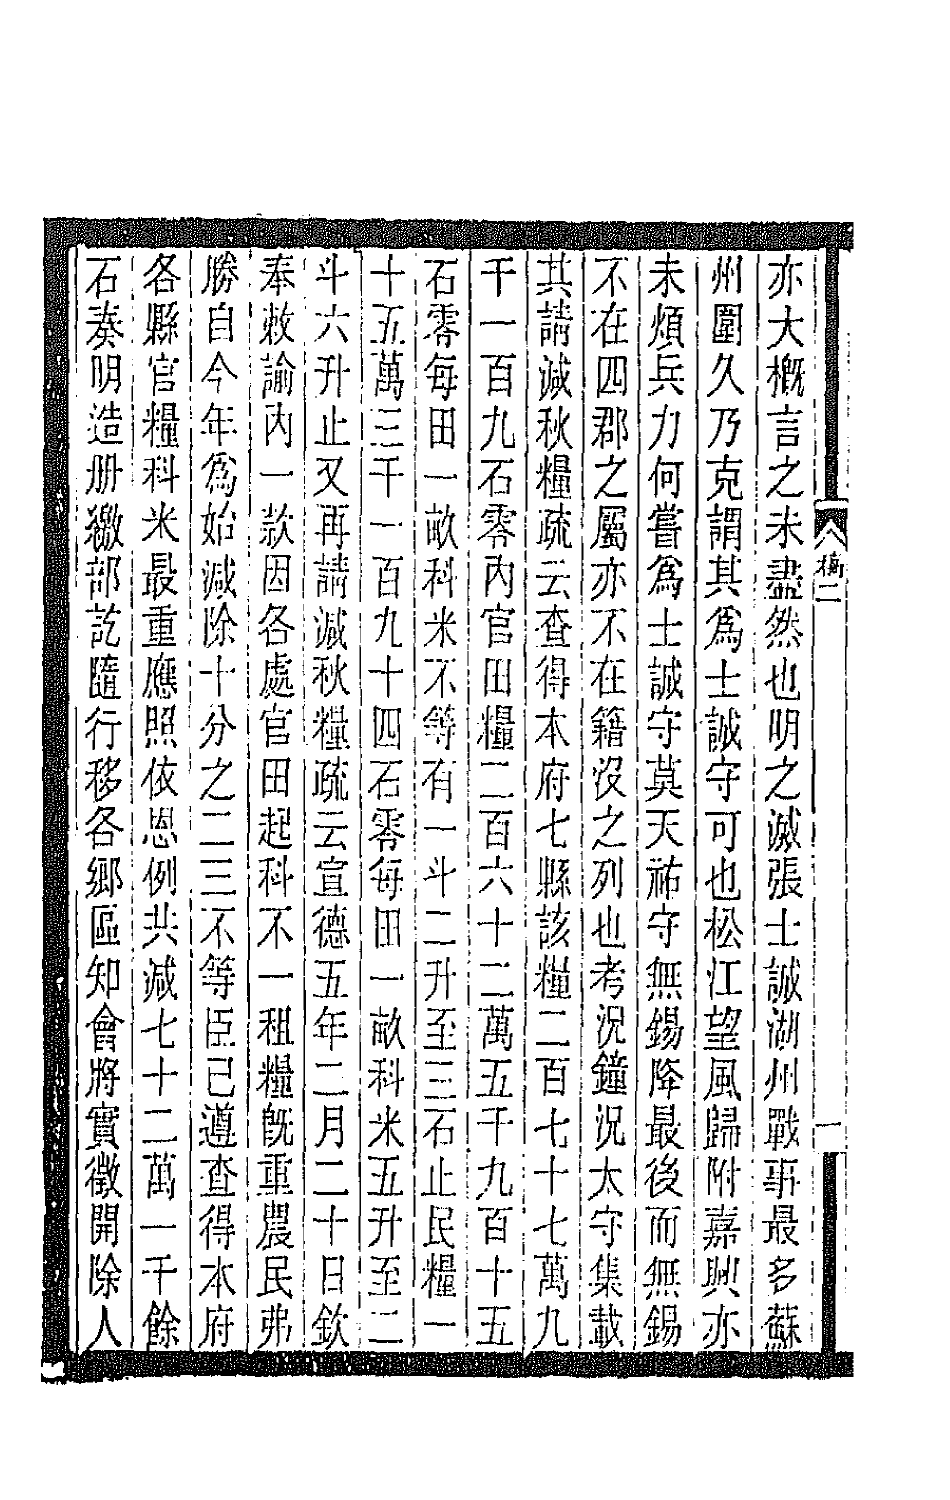 亦大概言之未盡然也明之滅張士誠湖州戰事最多蘇
州圍久乃克謂其爲士誠守可也松江望風歸附嘉興亦
未煩兵力何嘗爲士誠守莫天祐守無錫降最後而無錫
不在四郡之屬亦不在籍沒之列也考況鐘況太守集載
其請減秋糧疏云查得本府七縣該糧二百七十七萬九
千一百九石零內官田糧二百六十二萬五千九百十五
石零每田一畝科米不等有一斗二升至三石止民糧一
十五萬三千一百九十四石零每田一畝科米五升至二
斗六升止又再請減秋糧疏云宣德五年二月二十日欽
奉敕諭內一款因各處官田起科不一租糧旣重農民弗
勝自今年爲始減除十分之二三不等臣已遵查得本府
各縣官糧科米最重應照依恩例共減七十二萬一千餘
石奏明造册繳部訖隨行移各鄉區知會將實徵開除人
二
一